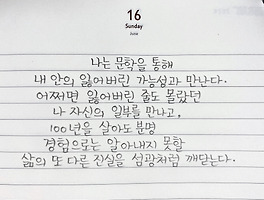 16
Sunday
June
나는 문학을 통해
내 안의 잃어버린 가능성과 만난다.
어쩌면 잃어버린 줄도 몰랐던
나 자신의 일부를 만나고,
100년을 살아도 분명
경험으로는 알아내지 못할
삶의 또 다른 진실을 섬광처럼 깨닫는다.